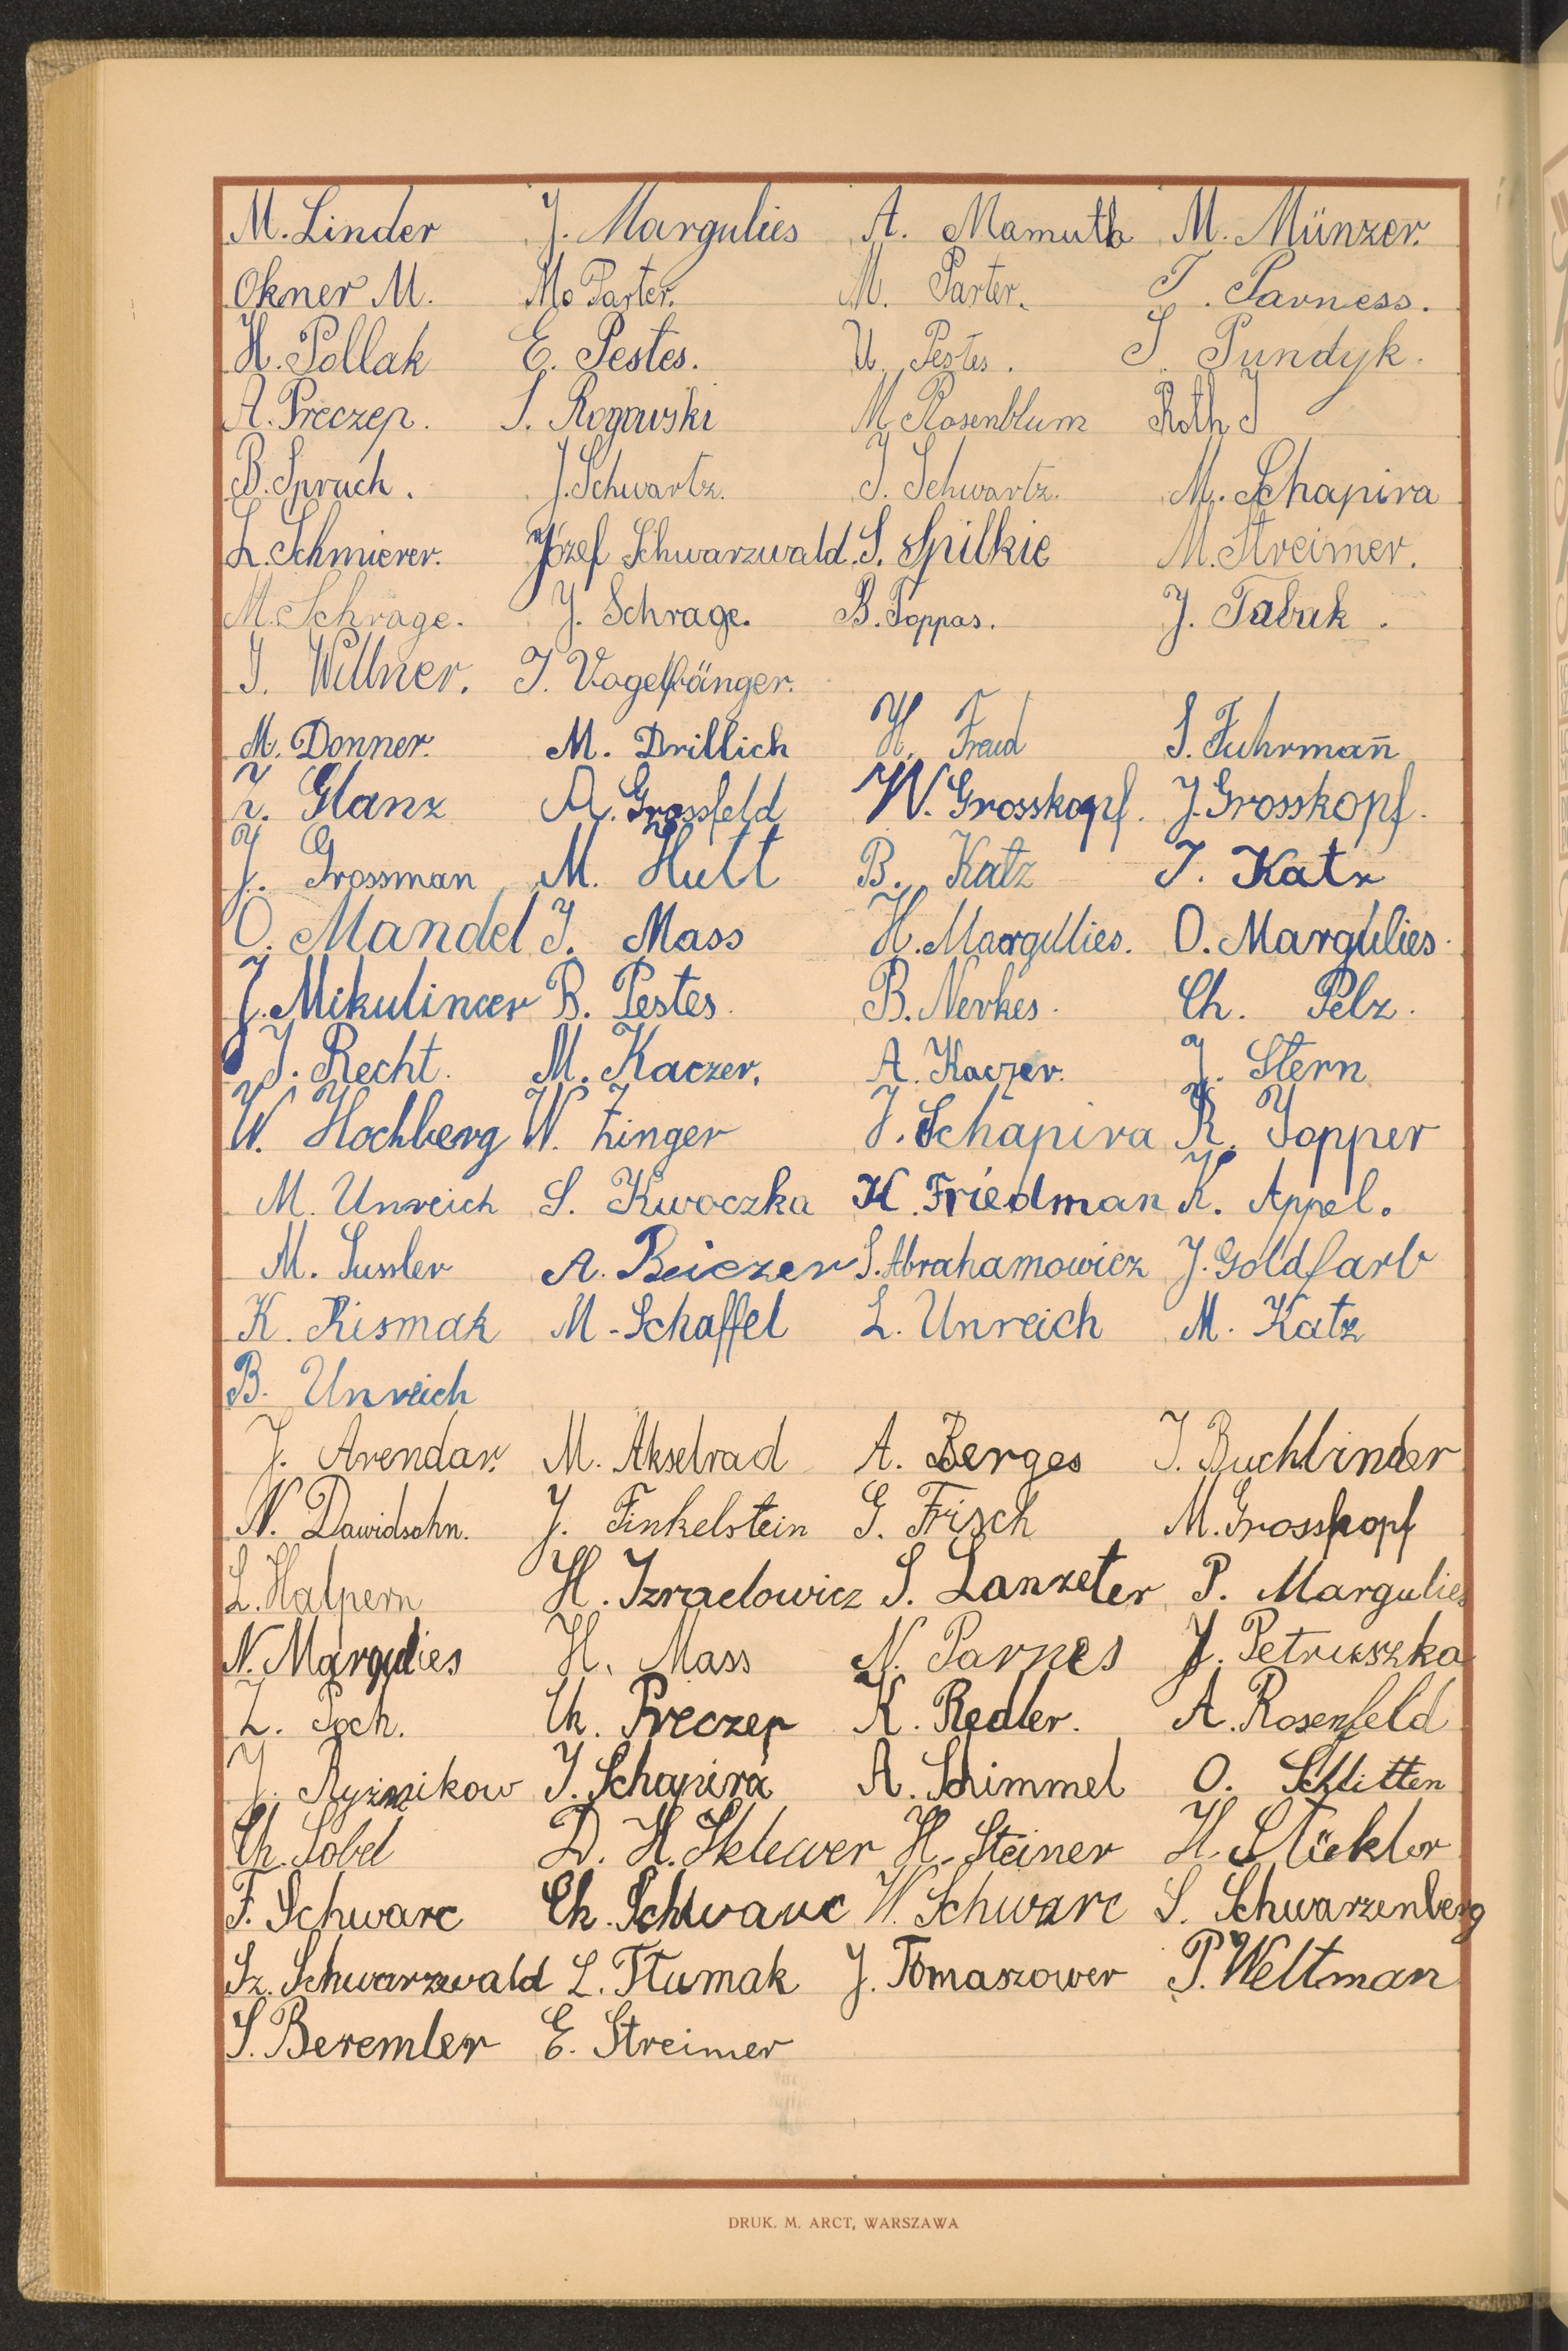 M. Linder J. Margulies A. Mamuth M. Münzer.
Okner M. Mo Parter. M. Parter. T. Parness.
H. Pollak E. Pestes. U. Pestes. S. Pundyk.
A. Preczep. S. Rogowski M. Rosenblum Roth J
B. Spruch. J. Schwartz. J. Schwartz. M. Schapira
L. Schmierer. Józef Schwarzwald. S. Spilkie M. Streimer.
M. Schrage. J. Schrage. B. Toppas. J. Tabak.
J. Willner. J. Vogelfänger.
M. Donner. M. Drillich H. Freud S. Fuhrman̄
Z. Glanz A. Grossfeld W. Grosskopf. J. Grosskopf.
J. Grossman M. Hutt B. Katz J. Katz
O. Mandel J. Mass H. Margulies. O. Margulies.
J. Mikulincer B. Pestes. B. Nerkes. Ch. Pelz.
J. Recht. M. Kaczer. A. Kaczer. J. Stern
W. Hochberg W. Zinger J. Schapira R. Topper
M. Unreich S. Kwoczka K. Friedman K. Appel.
M. Sussler A. Beiczer S. Abrahamowicz J. Goldfarb
K. Rismak M. Schaffel L. Unreich M. Katz
B. Unreich
J. Arendar. M. Akselrad A. Berges J. Buchbinder
N. Dawidsohn. J. Finkelstein G. Frisch M. Grosskopf
L. Halpern H. Izraelowicz S. Lanzeter P. Margulies
N. Margulies H. Mass N. Parnes J. Petruszka
Z. Poch. Ch. Preczep K. Redler. A. Rosenfeld
J. Schapira A. Schimmel O. Schlitten
Ch. Sobel D. H. Sklewer H. Steiner H.
F. Schwarc Ch. Schwarc W. Schwarc S. Schwarzenberg
Sz. Schwarzwald L. Tłumak J. Tomaszower P. Weltman
S. Beremler E. Streimer
DRUK. M. ARCT, WARSZAWA